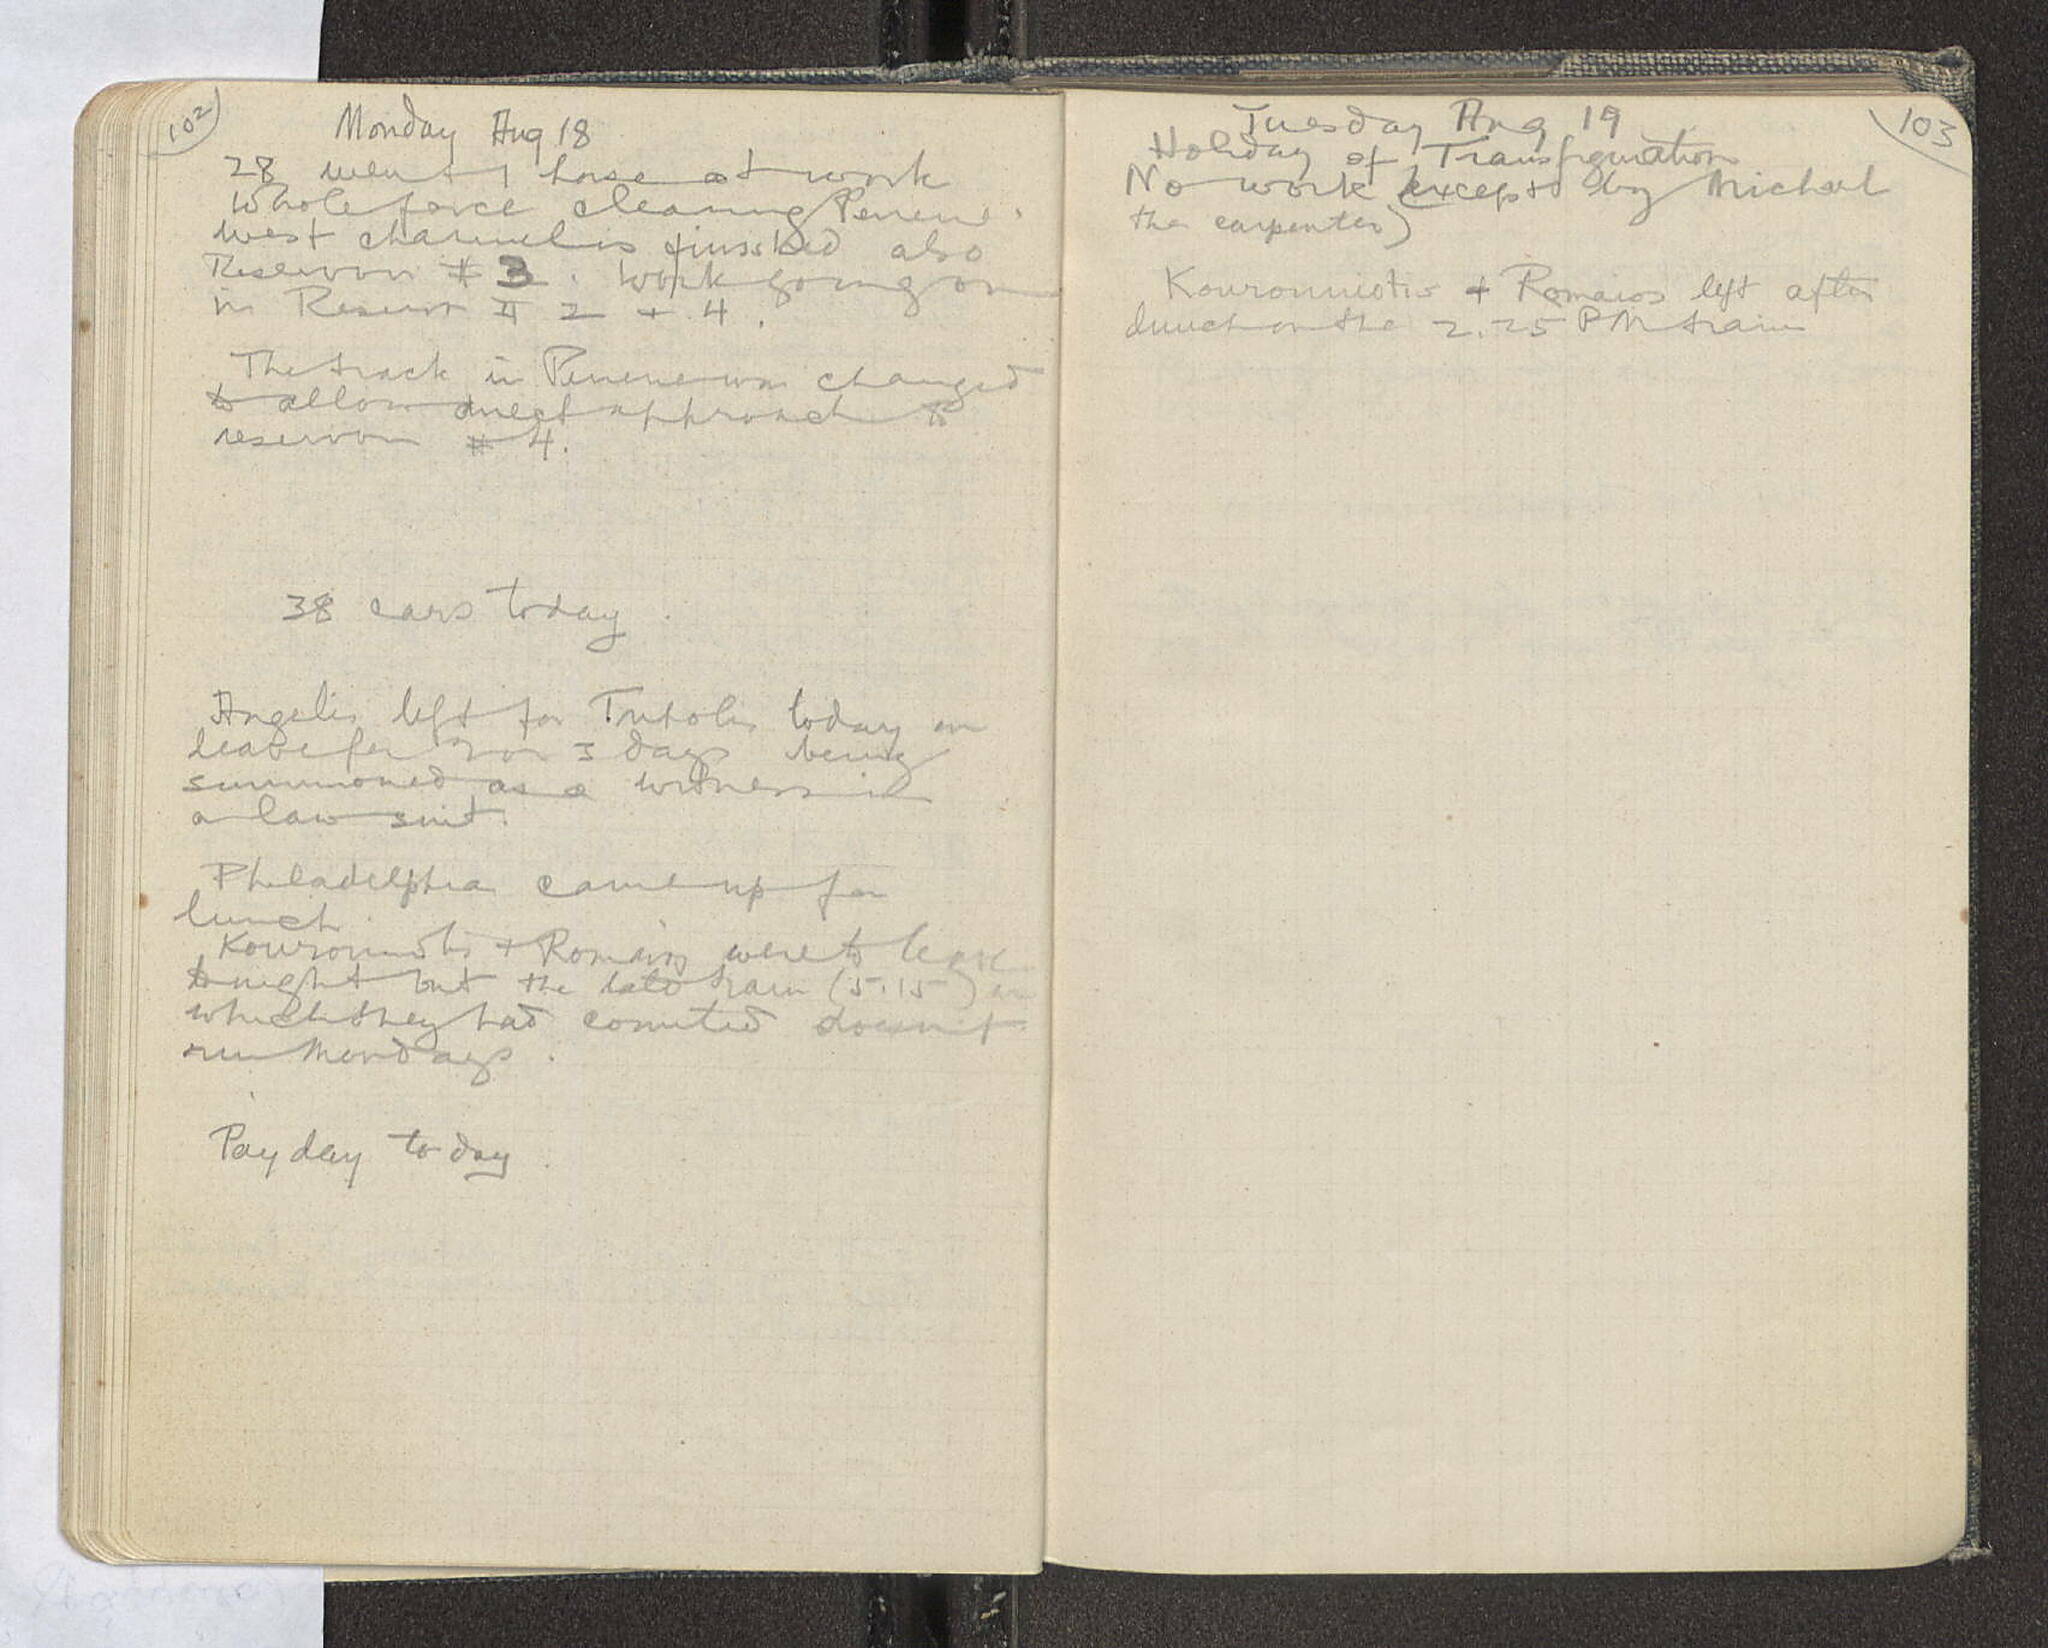 102
Monday Aug 18
28 men + 1 horse at work
Whole force clearing Peirene.
West channel is finished also
Reservoir # 3. Work going on
in Reservoir # 2 + 4.
The track in Peirene was changed
to allow direct approach to
reservoir # 4.
38 cars today.
Angelis left for Tripolis today on
leave for 2 or 3 days being
summoned as a witness in
a law suit.
Philadelpheus came up for
lunch.
Kourouniotis + Romaios were to leave
tonight but the late train (5.15) on
which they had counted doesn't
run Mondays.
Pay day today.
103
Tuesday Aug 19
Holiday of Transfiguration
No work (except by Michael
the carpenter)
Kourouniotis + Romaios left after
lunch on the 2.25 PM train